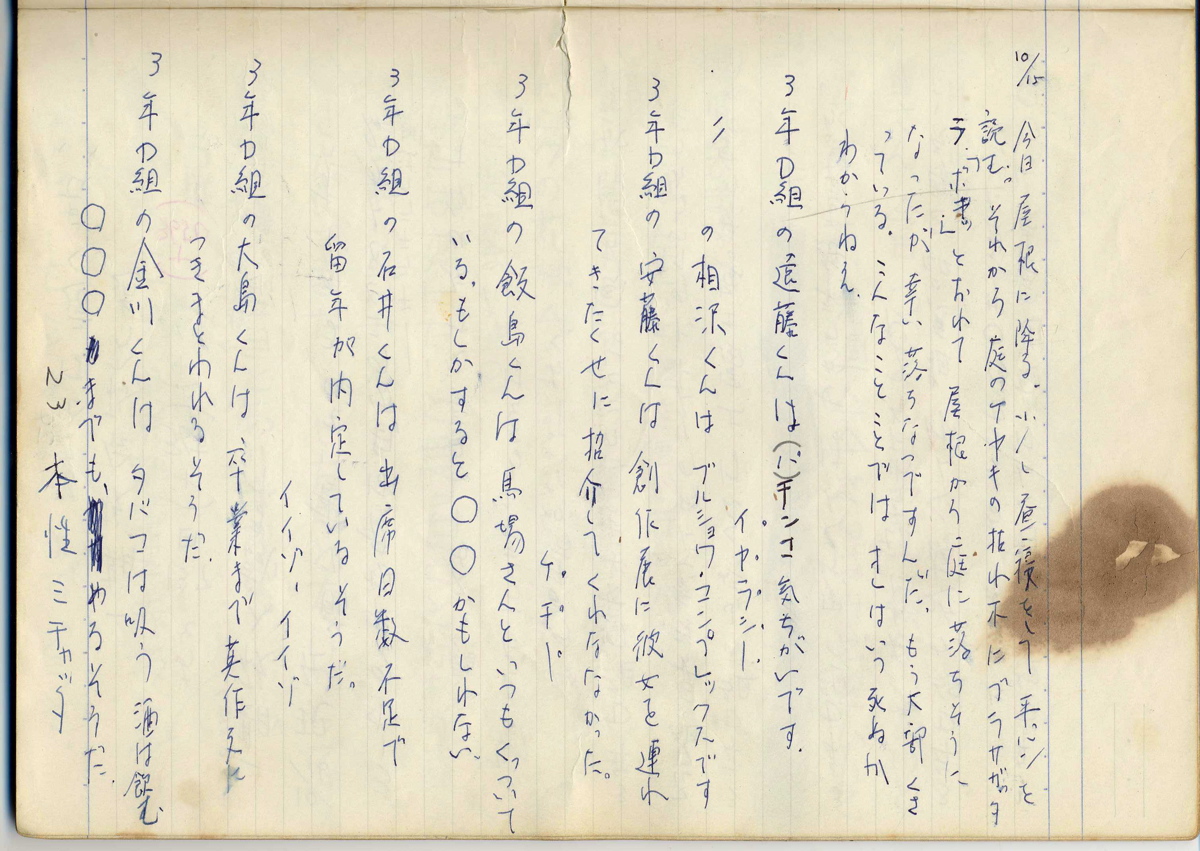 10/15 今日屋根に降る。少ノし昼寝をして 平パンを
読む。それから庭のケヤキの枯れ木にブラサガッタ
ラ「ボキ」とおれて屋根から庭に落ちそうに
なったが、幸い落ちなつですんだ。もう大部くさ
っている。こんなことことでは オレはいつ死ぬか
わからねえ。
3年D組の遠藤くんは(パ)チンコ気ちがいです。
イヤラシー。
〃 の相沢くんは ブルジョワ・コンプレックスです
3年D組の安藤くんは創作展に彼女を連れ
てきたくせに招介してくれなかった。
ケ。チ ー
3年D組の飯島くんは馬場さんといつもくっついて
いる。もしかすると〇〇かもしれない
3年D組の石井くんは出席日数不足で
留年が内定しているそうだ。
イイゾー イイゾ
3年D組の大島くんは卒業まで英作文に
つきまとわれるそうだ。
3年D組の金川くんは タバコは吸う 酒は飲む
〇〇〇までも、やるそうだ。
23 本性ミチャッタ